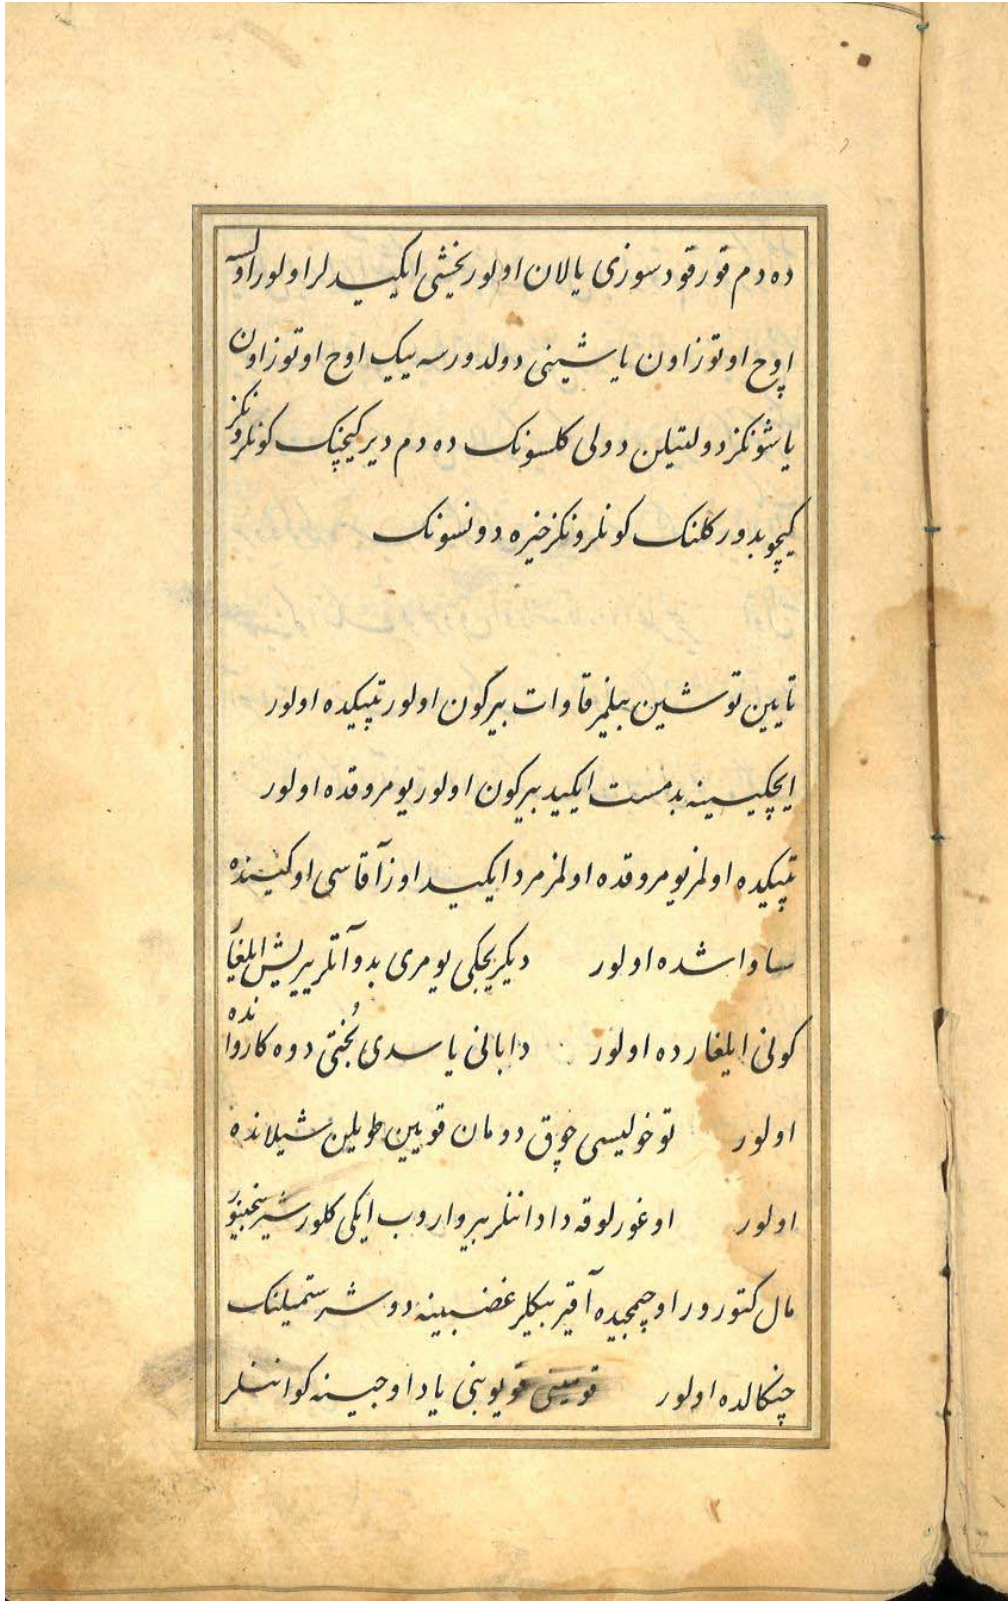 ده دم قورقود سوزی یالان اولور یخشی ایکیدلر اولور اولسه
اوچ اوتوز اون یاشینی دولدورسه بیک اوچ اوتوز اون
یاشونکز دولتیلن دولی کلسونک ده دم دیر کیچنک کونلرونکز
کیچوبدور کلنک کونلرونکز خیره دونسونک
تایین توشین بیلمز قاوات بیر کون اولور تپیکده اولور
ایچکیسینه بدمست ایکید بیر کون اولور یومروقده اولور
تپیکده اولمز یومروقده اولمز مرد ایکید اوز آقاسی اوکینده
ساواشده اولور دیکریجکی یومری بدو آتلر یریش ایلغار
کونی ایلغارده اولور دابانی یاسدی بُختی دوه کارواننده
اولور توخلیسی چوق دومان قویین طویلن شیلانده
اولور اوغورلوقه دادانتلر بیر واروب ایکی کلور
مال کتورور اوچمجیده آقیر بیکلر غضبینه دوشر ستمیلنک
چنکالده اولور قویوبنی یاد اوجینه کواننلر
۲